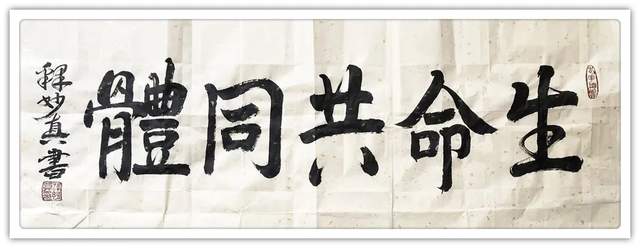 生命共同體
釋妙真書